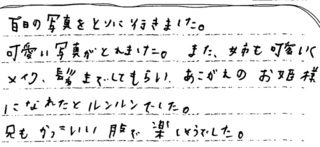 百日の写真をとりに行きました。
可愛い写真がとれました。また、姉も可愛く
メイク、髪までしてもらい、あこがえの お姫様
になれたとルンルンでした。
兄もかっこいい服で楽しそうでした。